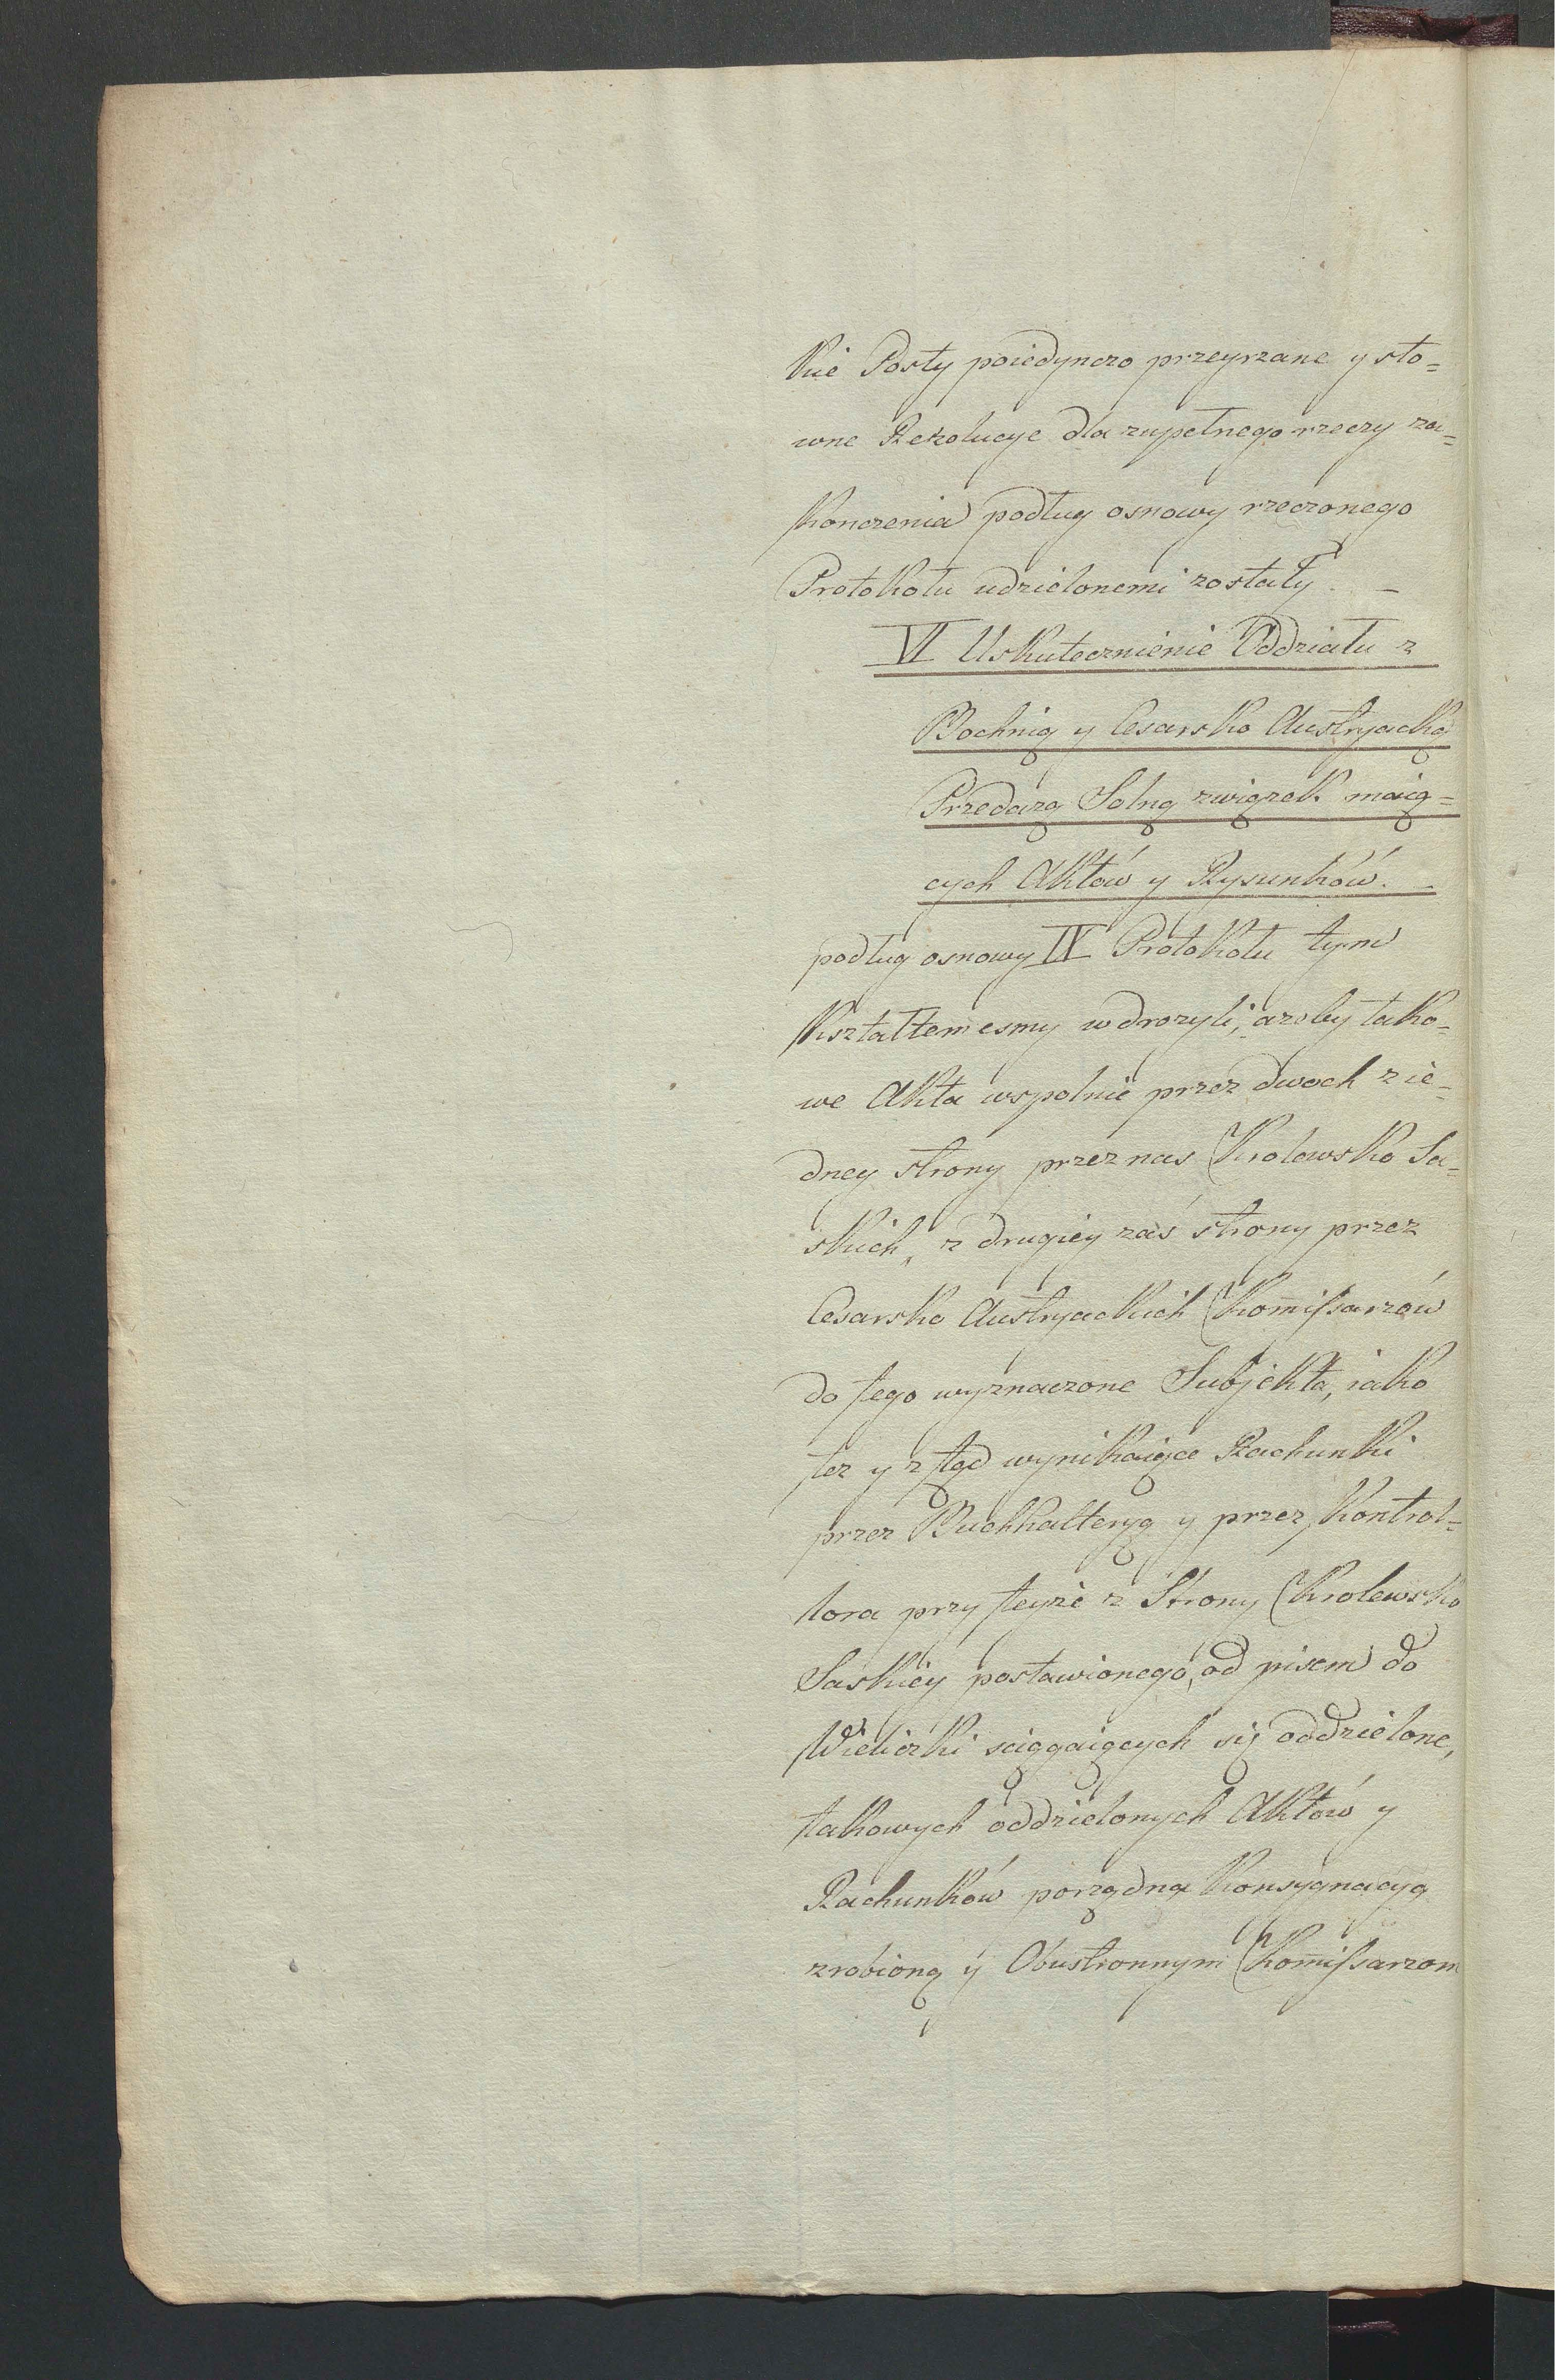 kie Posty poiedynczo przeyrzane y sto=
wne Rezolucye dla zupełnego rzeczy za=
konczenia podług osnowy rzeczonego
Protokołu udzielonemi zostały. –
VI Uskutecznienie Oddziału z
Bochnią y Cesarsko Austryacką
Przedażą Solną związek maią=
cych Aktów y Rysunków. –
podług osnowy IX Protokołu tym
kształtem esmy wdrozyli, azeby tako=
we Akta wspolnie przez dwoch z ie=
dney strony przez nas Krolewsko Sa=
skich, z drugiey zaś strony przez
Cesarsko Austryackich Kom̄issarzów
do tego wyznaczone Subjekta, iako
tez y z tąd wynikaiące Rachunki
przez Buchhalteryą y przez Kontrol=
lora przy teyze z Strony Krolewsko
Saskiey postawionego, od pisem do
Wieliczki sciągaiących się oddzielone,
takowych oddzielonych Aktów y
Rachunków porządną Konsygnacyą
zrobioną y Obustronnym Kom̄issarzom